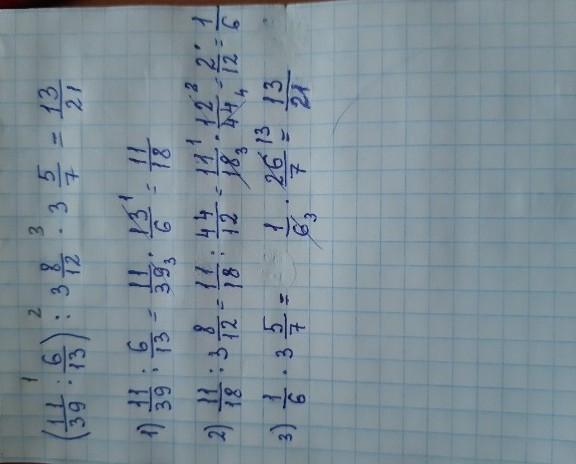 (11/39 : 6/13) : 3 8/12 · 3 5/7 = 13/21
1) 11/39 : 6/13 = 11/39 · 13/6 = 11/18
2) 11/18 : 3 8/12 = 11/18 : 44/12 = 11/18 · 12/44 = 2/12 = 1/6
3) 1/6 · 3 5/7 = 1/6 · 26/7 = 13/21